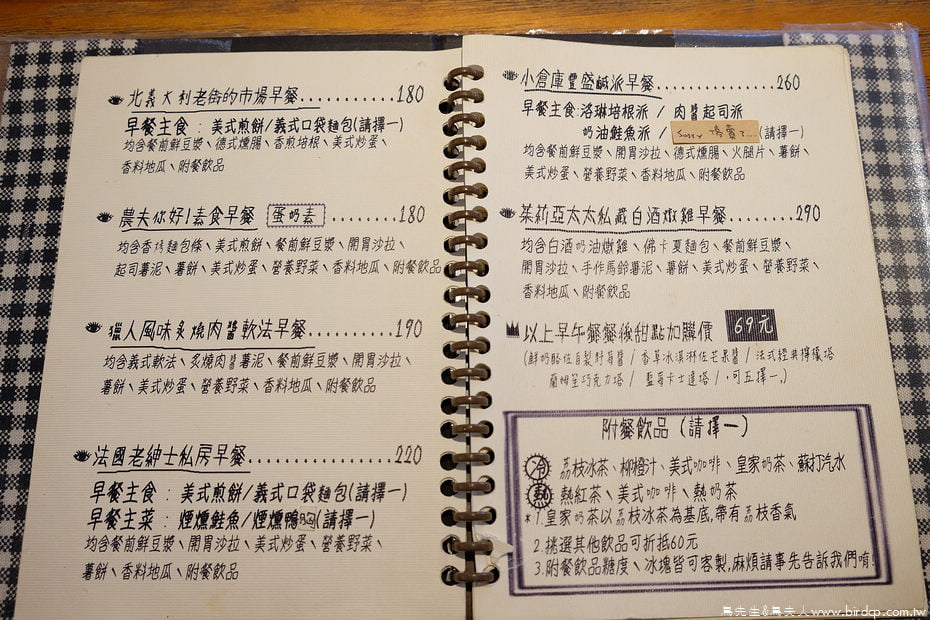 北義大利老街的市場早餐............180
早餐主食：美式煎餅/義式口袋麵包(請擇一)
均含餐前鮮豆漿、德式燻腸、香煎培根、美式炒蛋、
香料地瓜、附餐飲品
農夫你好!素食早餐 蛋奶素 .........180
均含香烤麵包條、美式煎餅、餐前鮮豆漿、開胃沙拉、
起司薯泥、薯餅、美式炒蛋、營養野菜、香料地瓜、附餐飲品
獵人風味炙燒肉醬軟法早餐...........190
均含義式軟法、炙燒肉醬薯泥、餐前鮮豆漿、開胃沙拉、
薯餅、美式炒蛋、營養野菜、香料地瓜、附餐飲品
法國老紳士私房早餐..................220
早餐主食：美式煎餅/義式口袋麵包(請擇一)
早餐主菜：煙燻鮭魚/煙燻鴨胸(請擇一)
均含餐前鮮豆漿、開胃沙拉、美式炒蛋、營養野菜、
薯餅、香料地瓜、附餐飲品
小倉庫豐盛鹹派早餐...............260
早餐主食:洛琳培根派 / 肉醬起司派
奶油鮭魚派 / Sorry 停賣了... (請擇一)
均含餐前鮮豆漿、開胃沙拉、德式燻腸、火腿片、薯餅、
美式炒蛋、營養野菜、香料地瓜、附餐飲品
茱莉亞太太私藏白酒燉雞早餐.........290
均含白酒奶油燉雞、佛卡夏麵包、餐前鮮豆漿、
開胃沙拉、手作馬鈴薯泥、薯餅、美式炒蛋、營養野菜、
香料地瓜、附餐飲品
以上早午餐餐後甜點加購價 69元
(鮮奶酪佐自製野莓醬 / 香草冰淇淋佐芒果醬 / 法式經典檸檬塔
蘭姆生巧克力塔 / 藍莓卡士達塔 / ，可五擇一。)
附餐飲品 (請擇一)
冷 荔枝冰茶、柳橙汁、美式咖啡、皇家奶茶、蘇打汽水
熱 熱紅茶、美式咖啡、熱奶茶
*1.皇家奶茶以荔枝冰茶為基底,帶有荔枝香氣
2.挑選其他飲品可折抵60元
3.附餐飲品糖度、冰塊皆可客製,麻煩請事先告訴我們唷!
鳥先生&鳥夫人 www.birdcp.com.tw